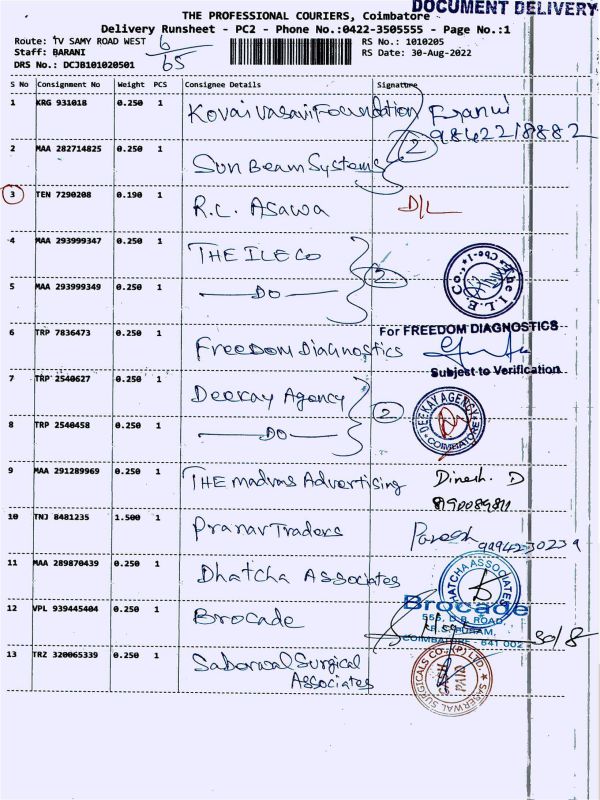 DOCUMENT DELIVERY
THE PROFESSIONAL COURIERS, Coimbatore
Delivery Runsheet - PC2 - Phone No.:0422-3505555 - Page No.:1
Route: TV SAMY ROAD WEST
Staff: BARANI
DRS No.: DCJB101020501
6/65
RS No.: 1010205
RS Date: 30-Aug-2022
S No Consignment No Weight PCS Consignee Details Signature
1 KRG 931018 0.250 1 Kovai Vasavi Foundation
9842218882
2 MAA 282714825 0.250 1 Sun Beam Systems 2
3 TEN 7290208 0.190 1 R.C. Asawa D/L
4 MAA 293999347 0.250 1 THE ILE Co
5 MAA 293999349 0.250 1 DO 2
The I.L.E. Co., Cbe-1
6 TRP 7836473 0.250 1 Freedom Diagnostics
For FREEDOM DIAGNOSTICS
Subject to Verification
7 TRP 2540627 0.250 1 Deekay Agency
8 TRP 2540458 0.250 1 DO 2
DEEKAY AGENCY
COIMBATORE
9 MAA 291289969 0.250 1 THE madras Advertising Dinesh. D
10 TNJ 8481235 1.500 1 Pranav Traders
11 MAA 289870439 0.250 1 Dhatcha Associates
DHATCHA ASSOCIATES
12 VPL 939445404 0.250 1 Brocade
Brocade
555, D.B. ROAD,
R.S. PURAM,
COIMBATORE - 641 002
30/8
13 TRZ 320065339 0.250 1 Saberwal Surgical
Associates
SABERWAL SURGICALS CO. (P) LTD.
CASH
PAID